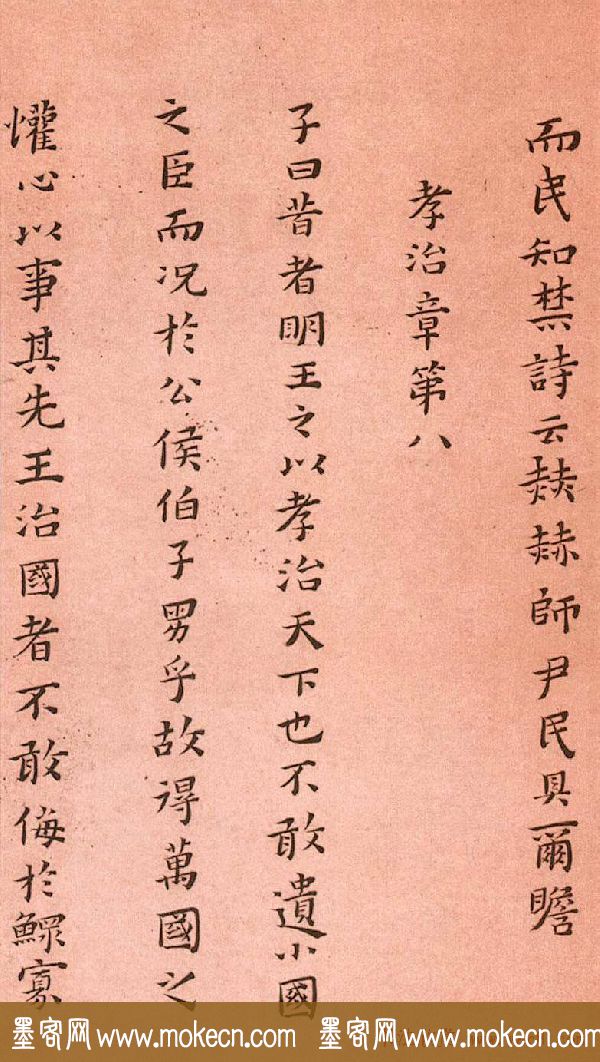 而民知禁詩云赫赫師尹民具爾瞻
孝治章第八
子曰昔者明王之以孝治天下也不敢遺小國
之臣而况於公侯伯子男乎故得萬國之
懽心以事其先王治國者不敢侮於鰥寡
墨客网 www.mokecn.com 墨客网 www.mokecn.com